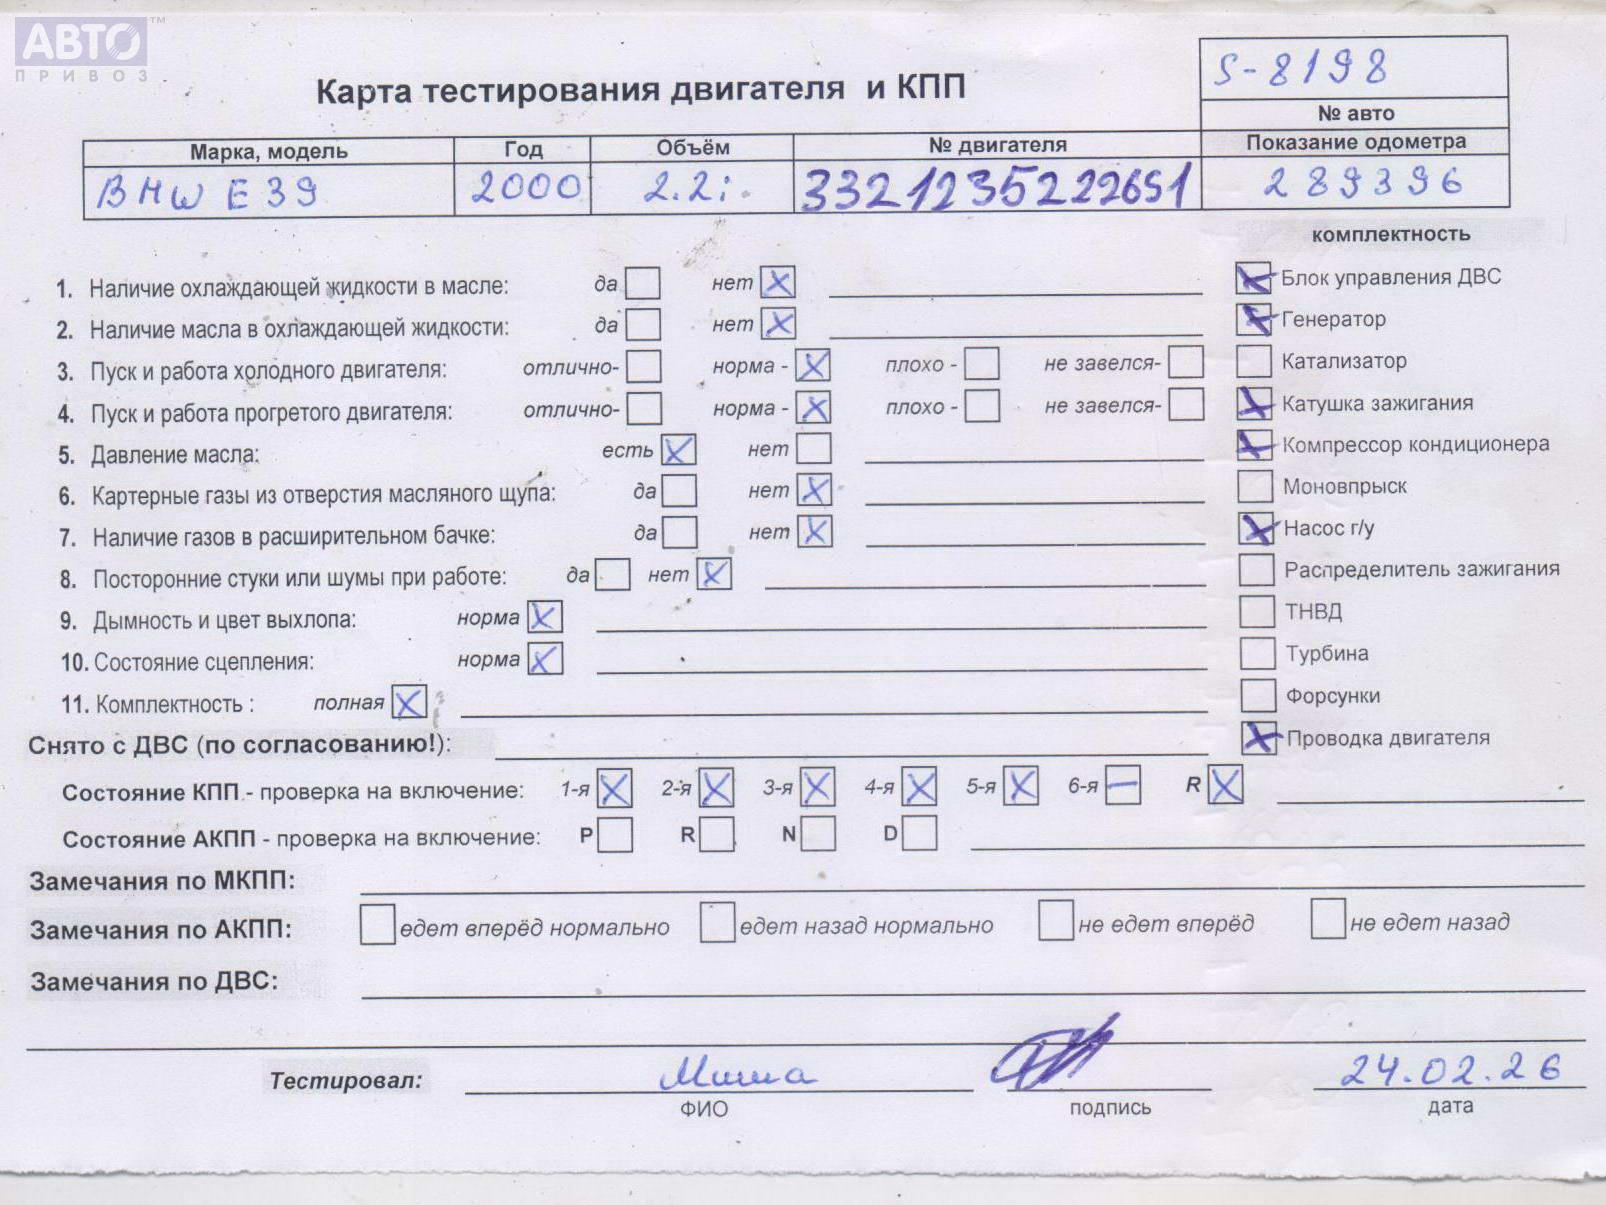 АВТО™
ПРИВОЗ
S-8198
Карта тестирования двигателя и КПП
№ авто
Марка, модель Год Объём № двигателя Показание одометра
BMW E39 2000 2.2i 3321235222651 289396
комплектность
1. Наличие охлаждающей жидкости в масле: да нет X X Блок управления ДВС
2. Наличие масла в охлаждающей жидкости: да нет X X Генератор
3. Пуск и работа холодного двигателя: отлично- норма - X плохо - не завелся- Катализатор
4. Пуск и работа прогретого двигателя: отлично- норма - X плохо - не завелся- X Катушка зажигания
5. Давление масла: есть X нет X Компрессор кондиционера
6. Картерные газы из отверстия масляного щупа: да нет X Моновпрыск
7. Наличие газов в расширительном бачке: да нет X X Насос г/у
8. Посторонние стуки или шумы при работе: да нет X Распределитель зажигания
9. Дымность и цвет выхлопа: норма X ТНВД
10. Состояние сцепления: норма X Турбина
11. Комплектность : полная X Форсунки
Снято с ДВС (по согласованию!): X Проводка двигателя
Состояние КПП - проверка на включение: 1-я X 2-я X 3-я X 4-я X 5-я X 6-я — R X
Состояние АКПП - проверка на включение: P R N D
Замечания по МКПП:
Замечания по АКПП: едет вперёд нормально едет назад нормально не едет вперёд не едет назад
Замечания по ДВС:
Тестировал: Миша 24.02.26
ФИО подпись дата